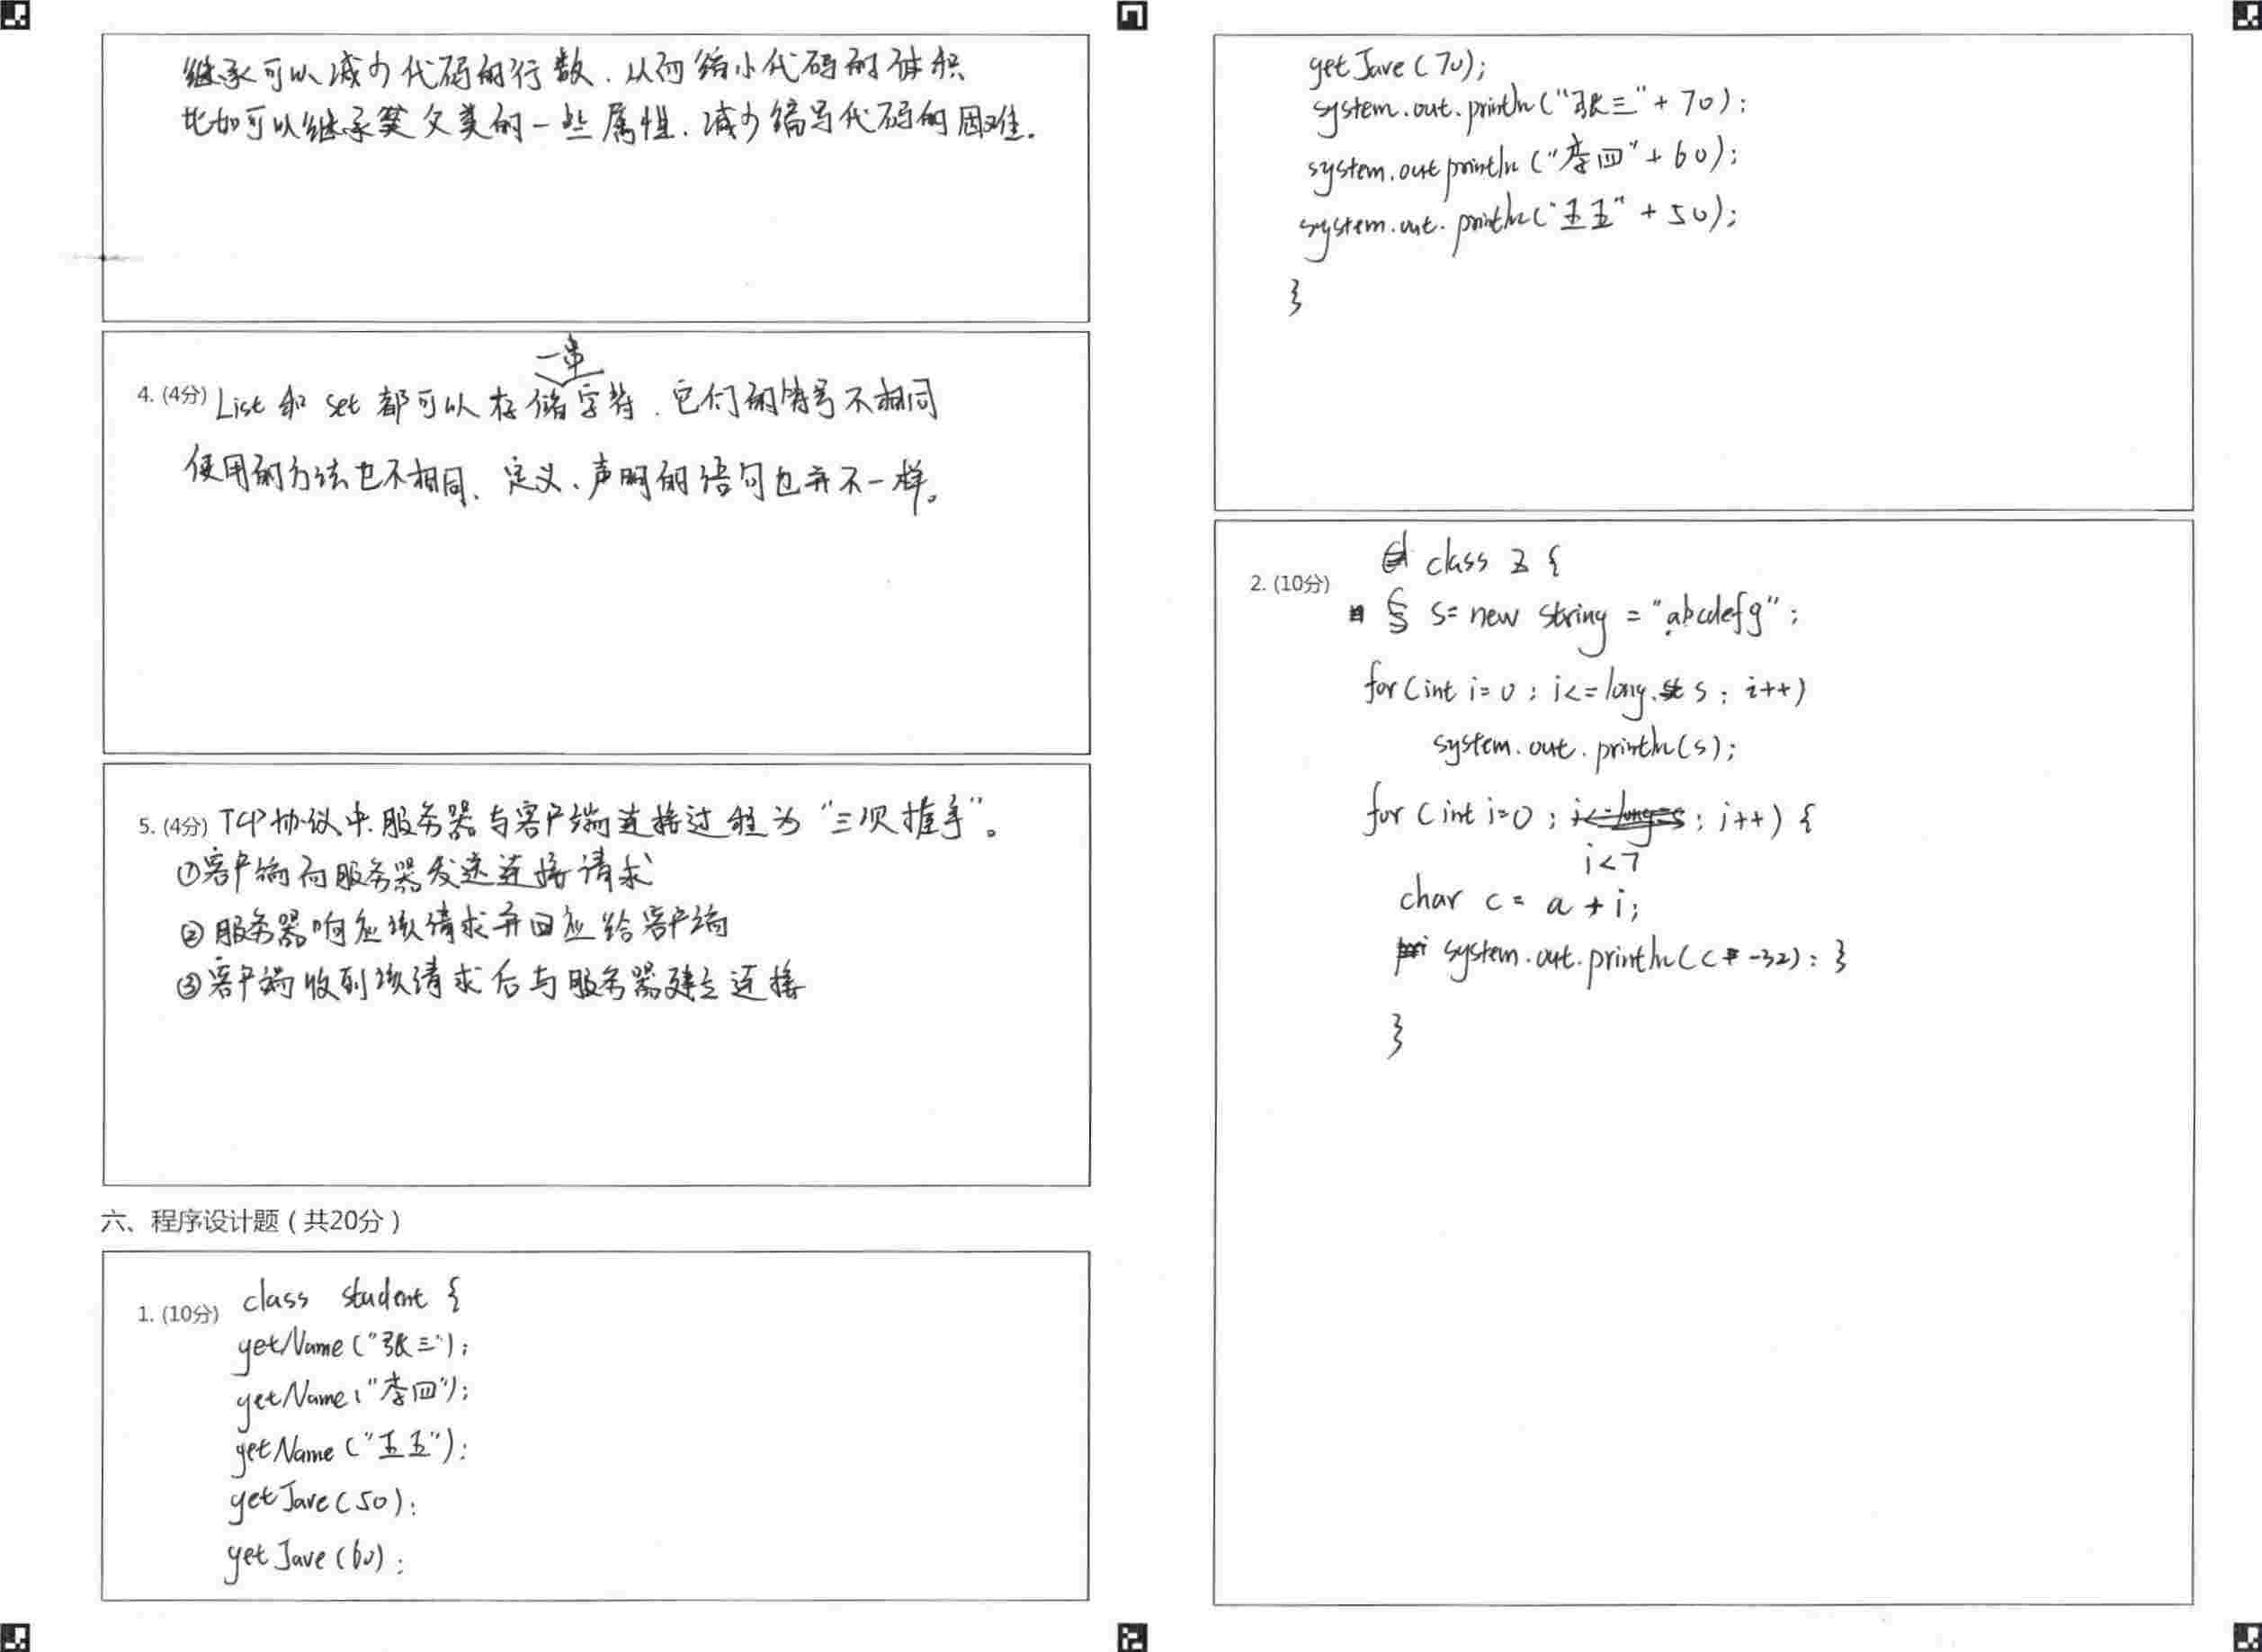 继承可以减少代码的行数.从而缩小代码的体积
比如可以继承父类的一些属性.减少编写代码的困难.
一串
4. (4分) List 和 set 都可以存储字符.它们的符号不相同
使用的方法也不相同、定义、声明的语句也并不一样。
5. (4分) TCP协议中.服务器与客户端连接过程为"三次握手"。
①客户端向服务器发送连接请求
②服务器响应该请求并回应给客户端
③客户端收到该请求后与服务器建立连接
六、程序设计题（共20分）
1. (10分) class student {
getName("张三");
getName("李四");
getName("王五");
getJave(50);
getJave(60);
getJave(70);
system.out.println("张三"+70);
system.out println("李四"+60);
system.out.println("王五"+50);
}
class Z {
2. (10分)
s= new string = "abcdefg";
for(int i=0; i<=long. s; i++)
system.out.println(s);
for(int i=0; ; i++) {
i<7
char c= a+i;
system.out.println(c -32); }
}